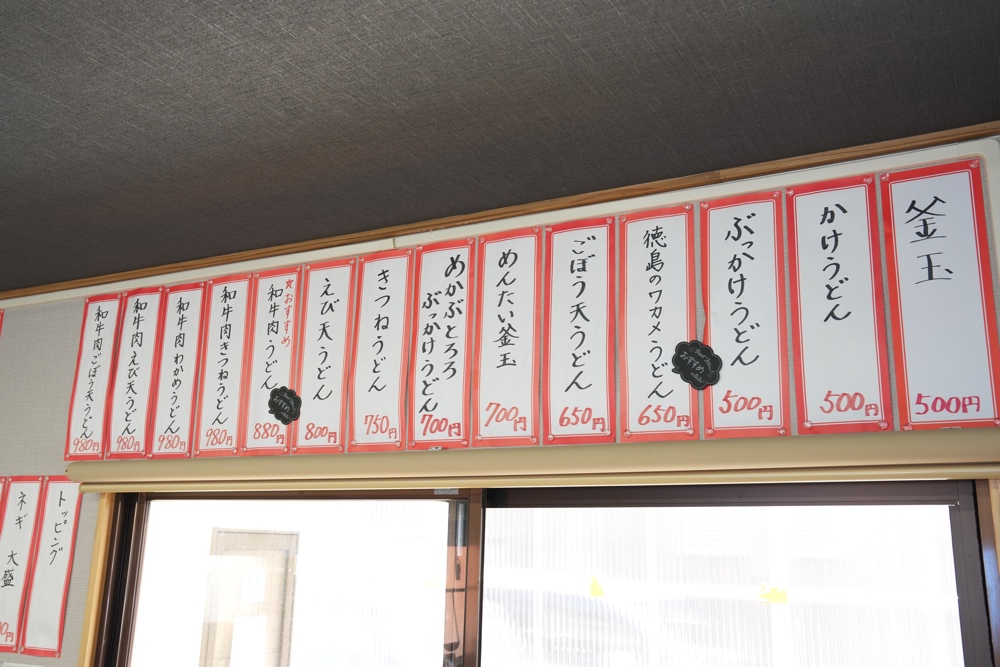 釜玉
500円
かけうどん
500円
ぶっかけうどん
500円
徳島のワカメうどん
650円
おすすめ
ごぼう天うどん
650円
めんたい釜玉
700円
めかぶとろろ
ぶっかけうどん
700円
きつねうどん
750円
えび天うどん
800円
☆おすすめ
和牛肉うどん
880円
おすすめ
和牛肉きつねうどん
980円
和牛肉わかめうどん
980円
和牛肉えび天うどん
980円
和牛肉ごぼう天うどん
980円
トッピング
ネギ 大盛
0円